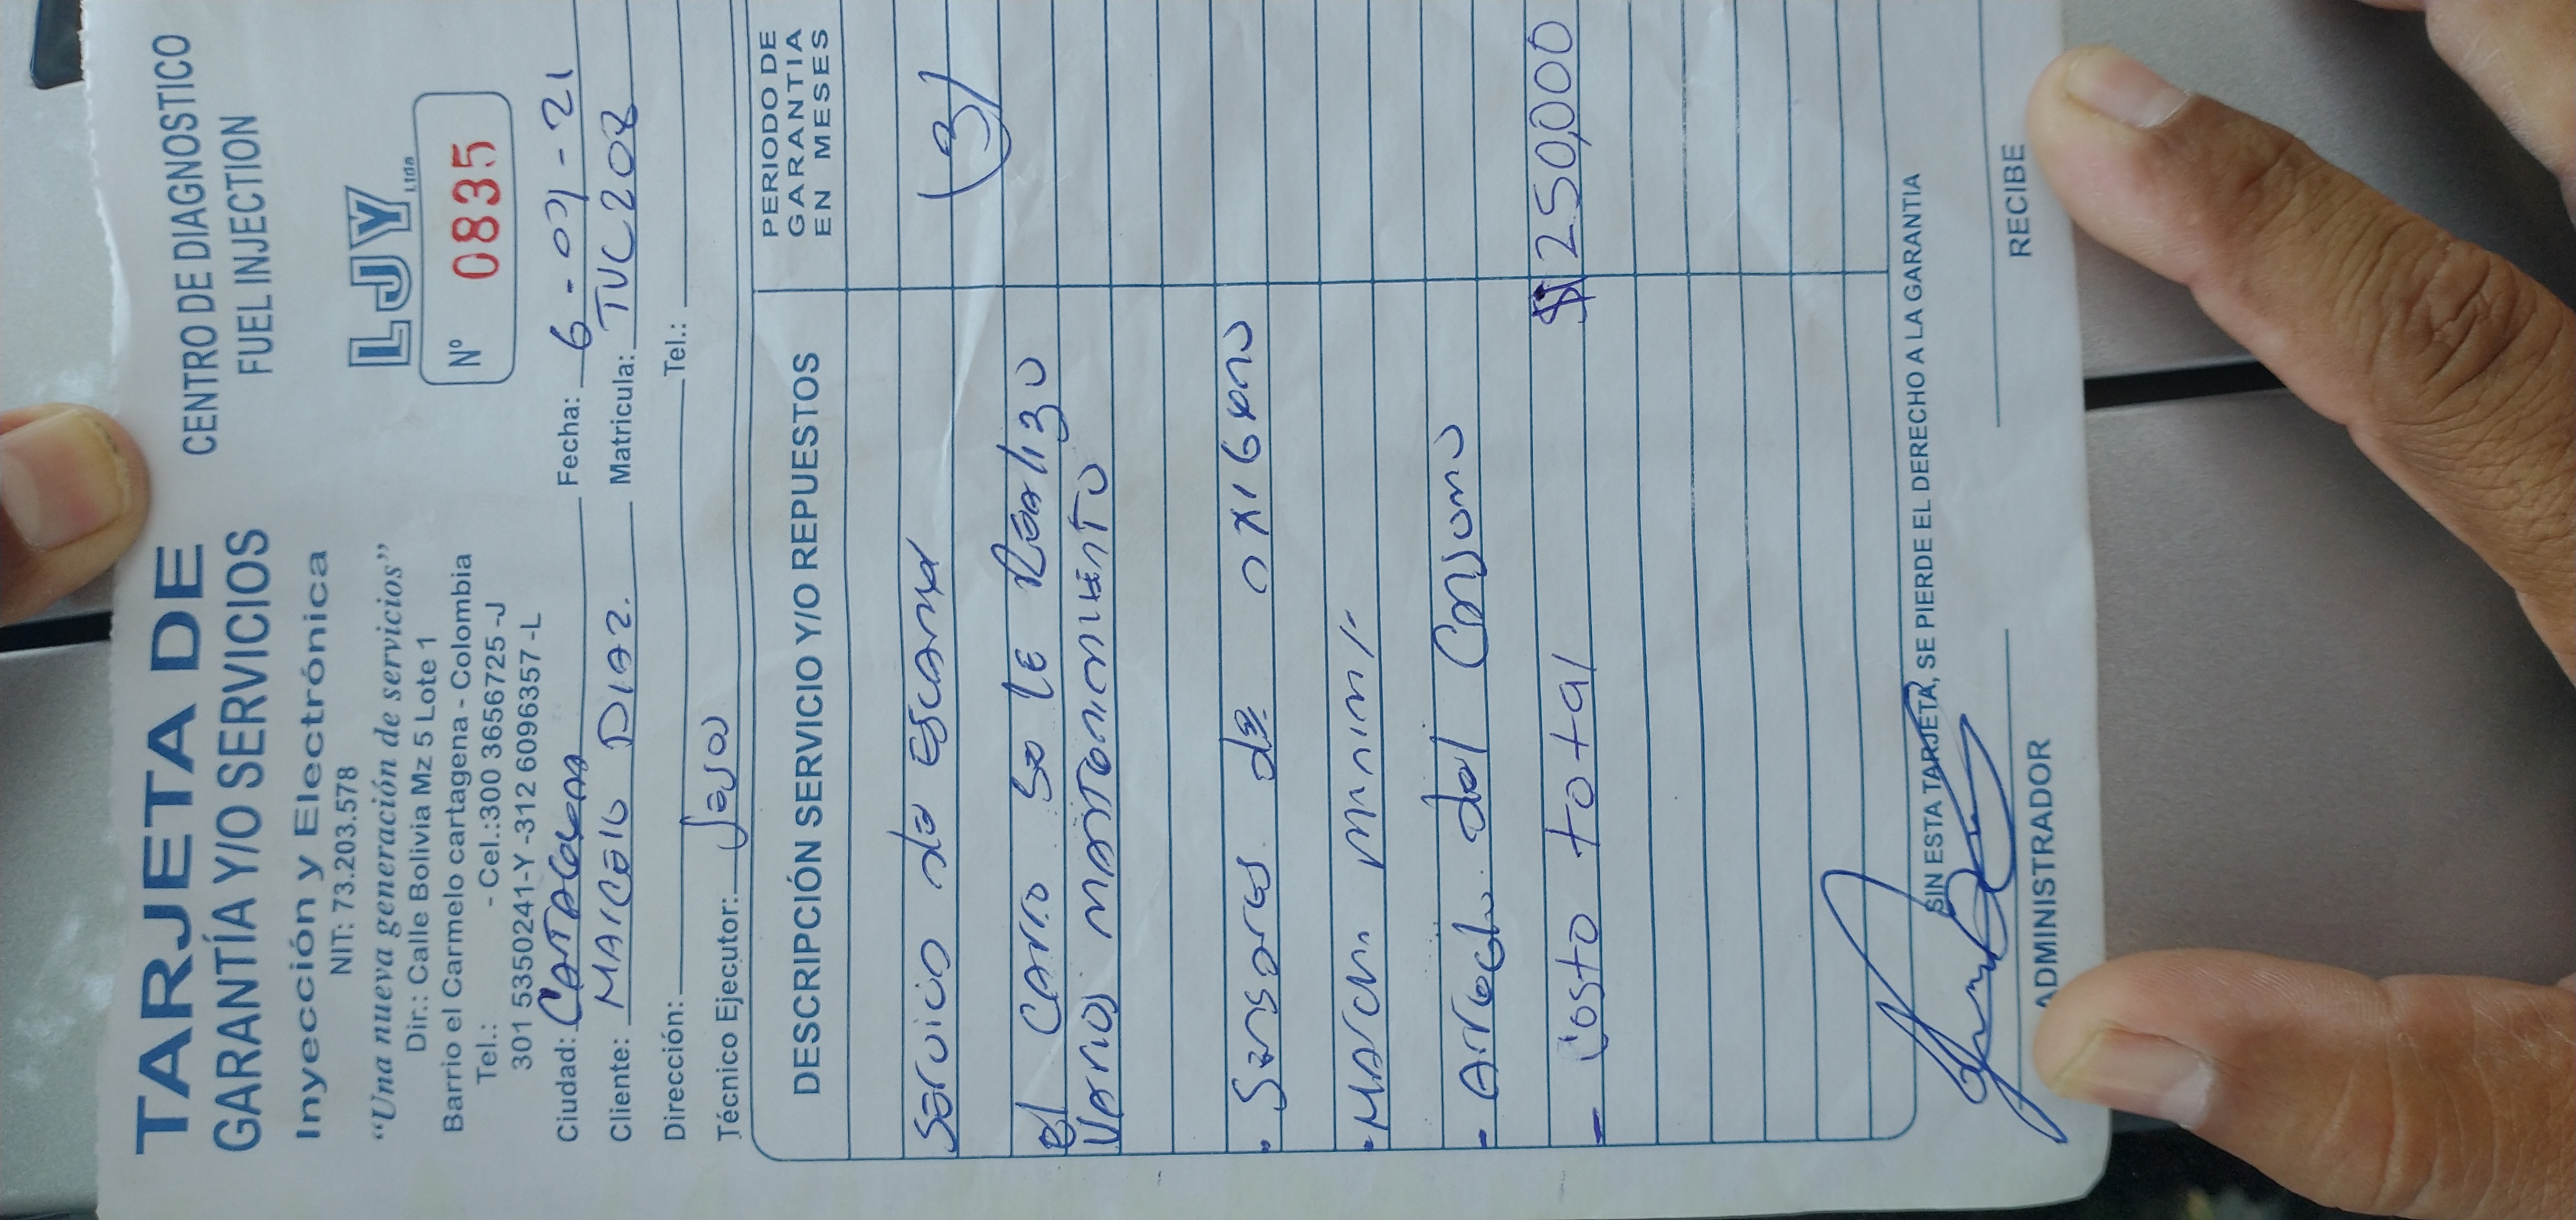 TARJETA DE
GARANTÍA Y/O SERVICIOS
Inyección y Electrónica
NIT: 73.203.578
“Una nueva generación de servicios”
Dir.: Calle Bolivia Mz 5 Lote 1
Barrio el Carmelo cartagena - Colombia
Tel.: - Cel.:300 3656725 -J
301 5350241-Y -312 6096357 -L
CENTRO DE DIAGNOSTICO
FUEL INJECTION
LJY Ltda
Nº 0835
Ciudad: CARTAGENA Fecha: 6 - 07 - 21
Cliente: MARCELO DIAZ. Matricula: TUC208
Dirección: Tel.:
Técnico Ejecutor:
DESCRIPCIÓN SERVICIO Y/O REPUESTOS
PERIODO DE
GARANTIA
EN MESES
Servicio de Escaner (3)
el Carro se le Realizo
Varios mantenimiento
. Sensores de oxigeno
. MARCH minim
- Arreglo del Consumo
- Costo total $ 250,000
SIN ESTA TARJETA, SE PIERDE EL DERECHO A LA GARANTIA
ADMINISTRADOR
RECIBE